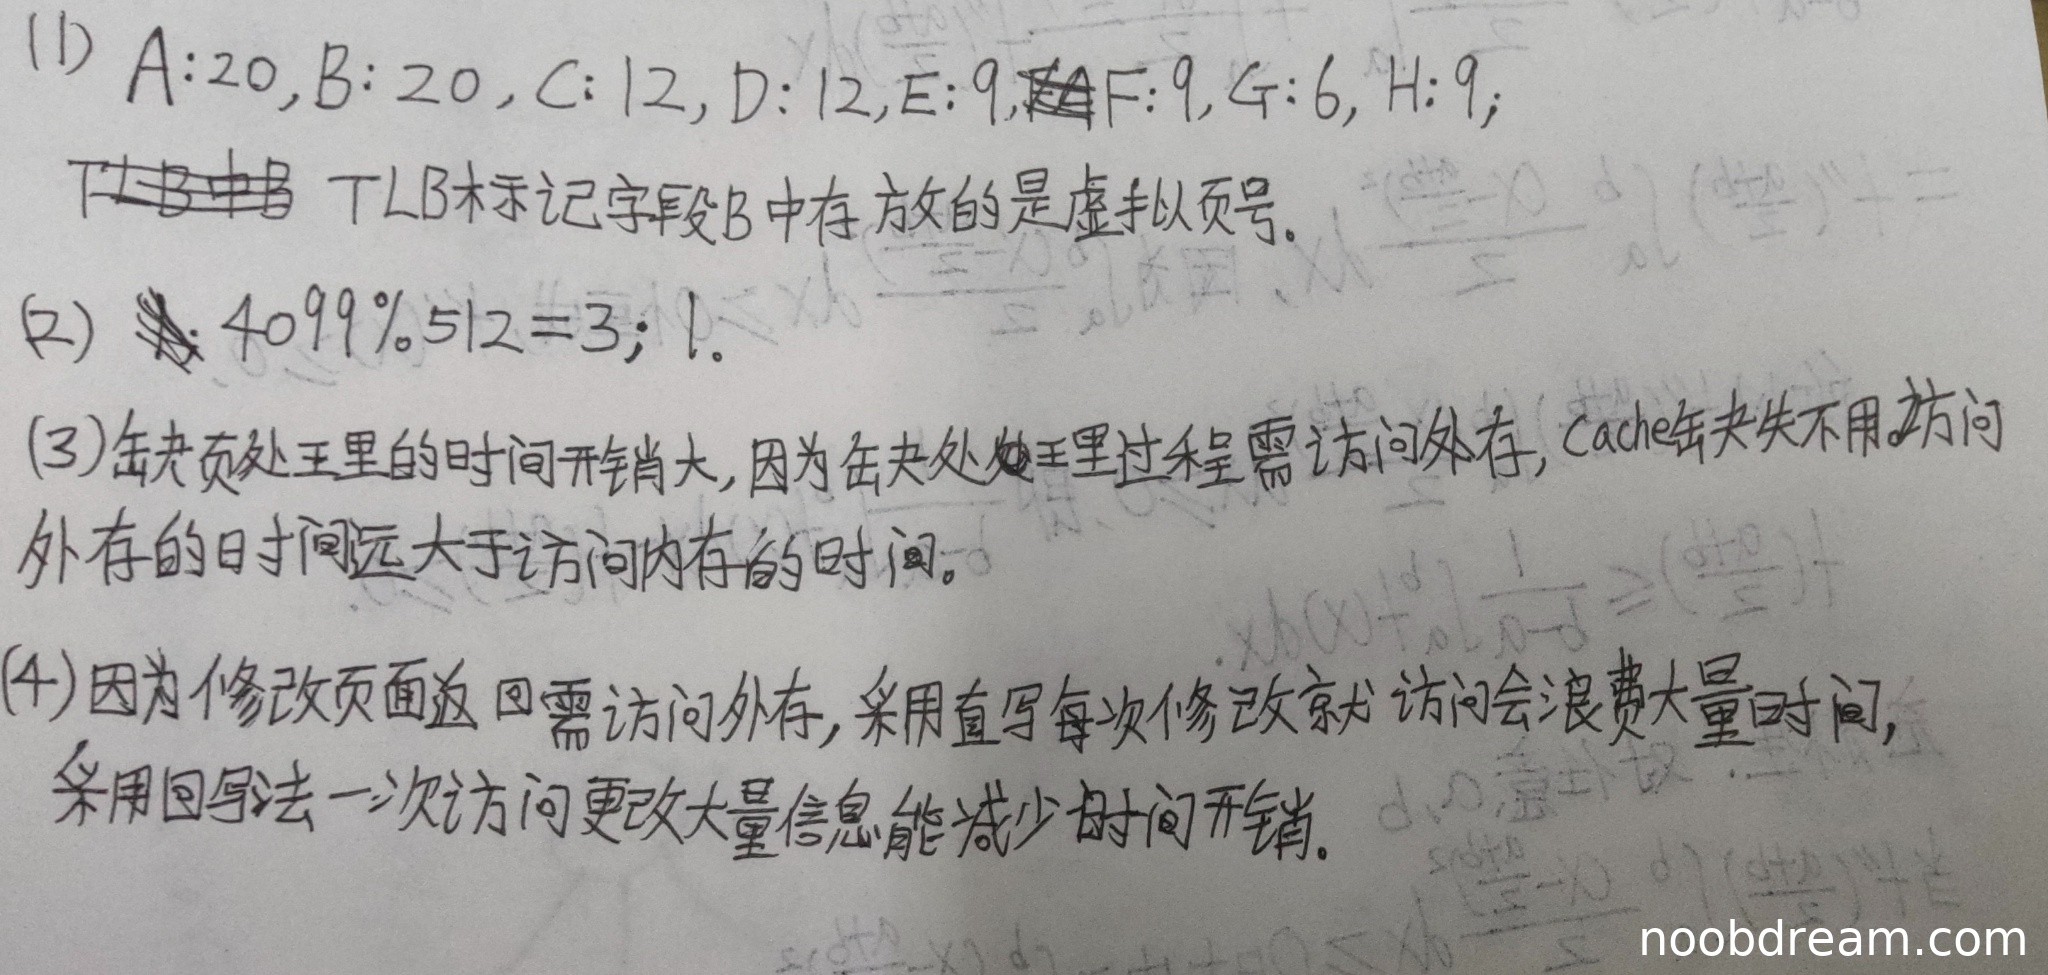 (1) A:20, B:20, C:12, D:12, E:9, F:9, G:6, H:9;
TLB标记字段B中存放的是虚拟页号。
(2) 4099%512=3; 1.
(3)缺页处理的时间开销大,因为缺处理过程需访问外存,Cache缺失不用。访问
外存的时间远大于访问内存的时间。
(4)因为修改页面返回需访问外存,采用直写每次修改就访问会浪费大量时间,
采用回写法一次访问更改大量信息能减少时间开销。
noobdream.com